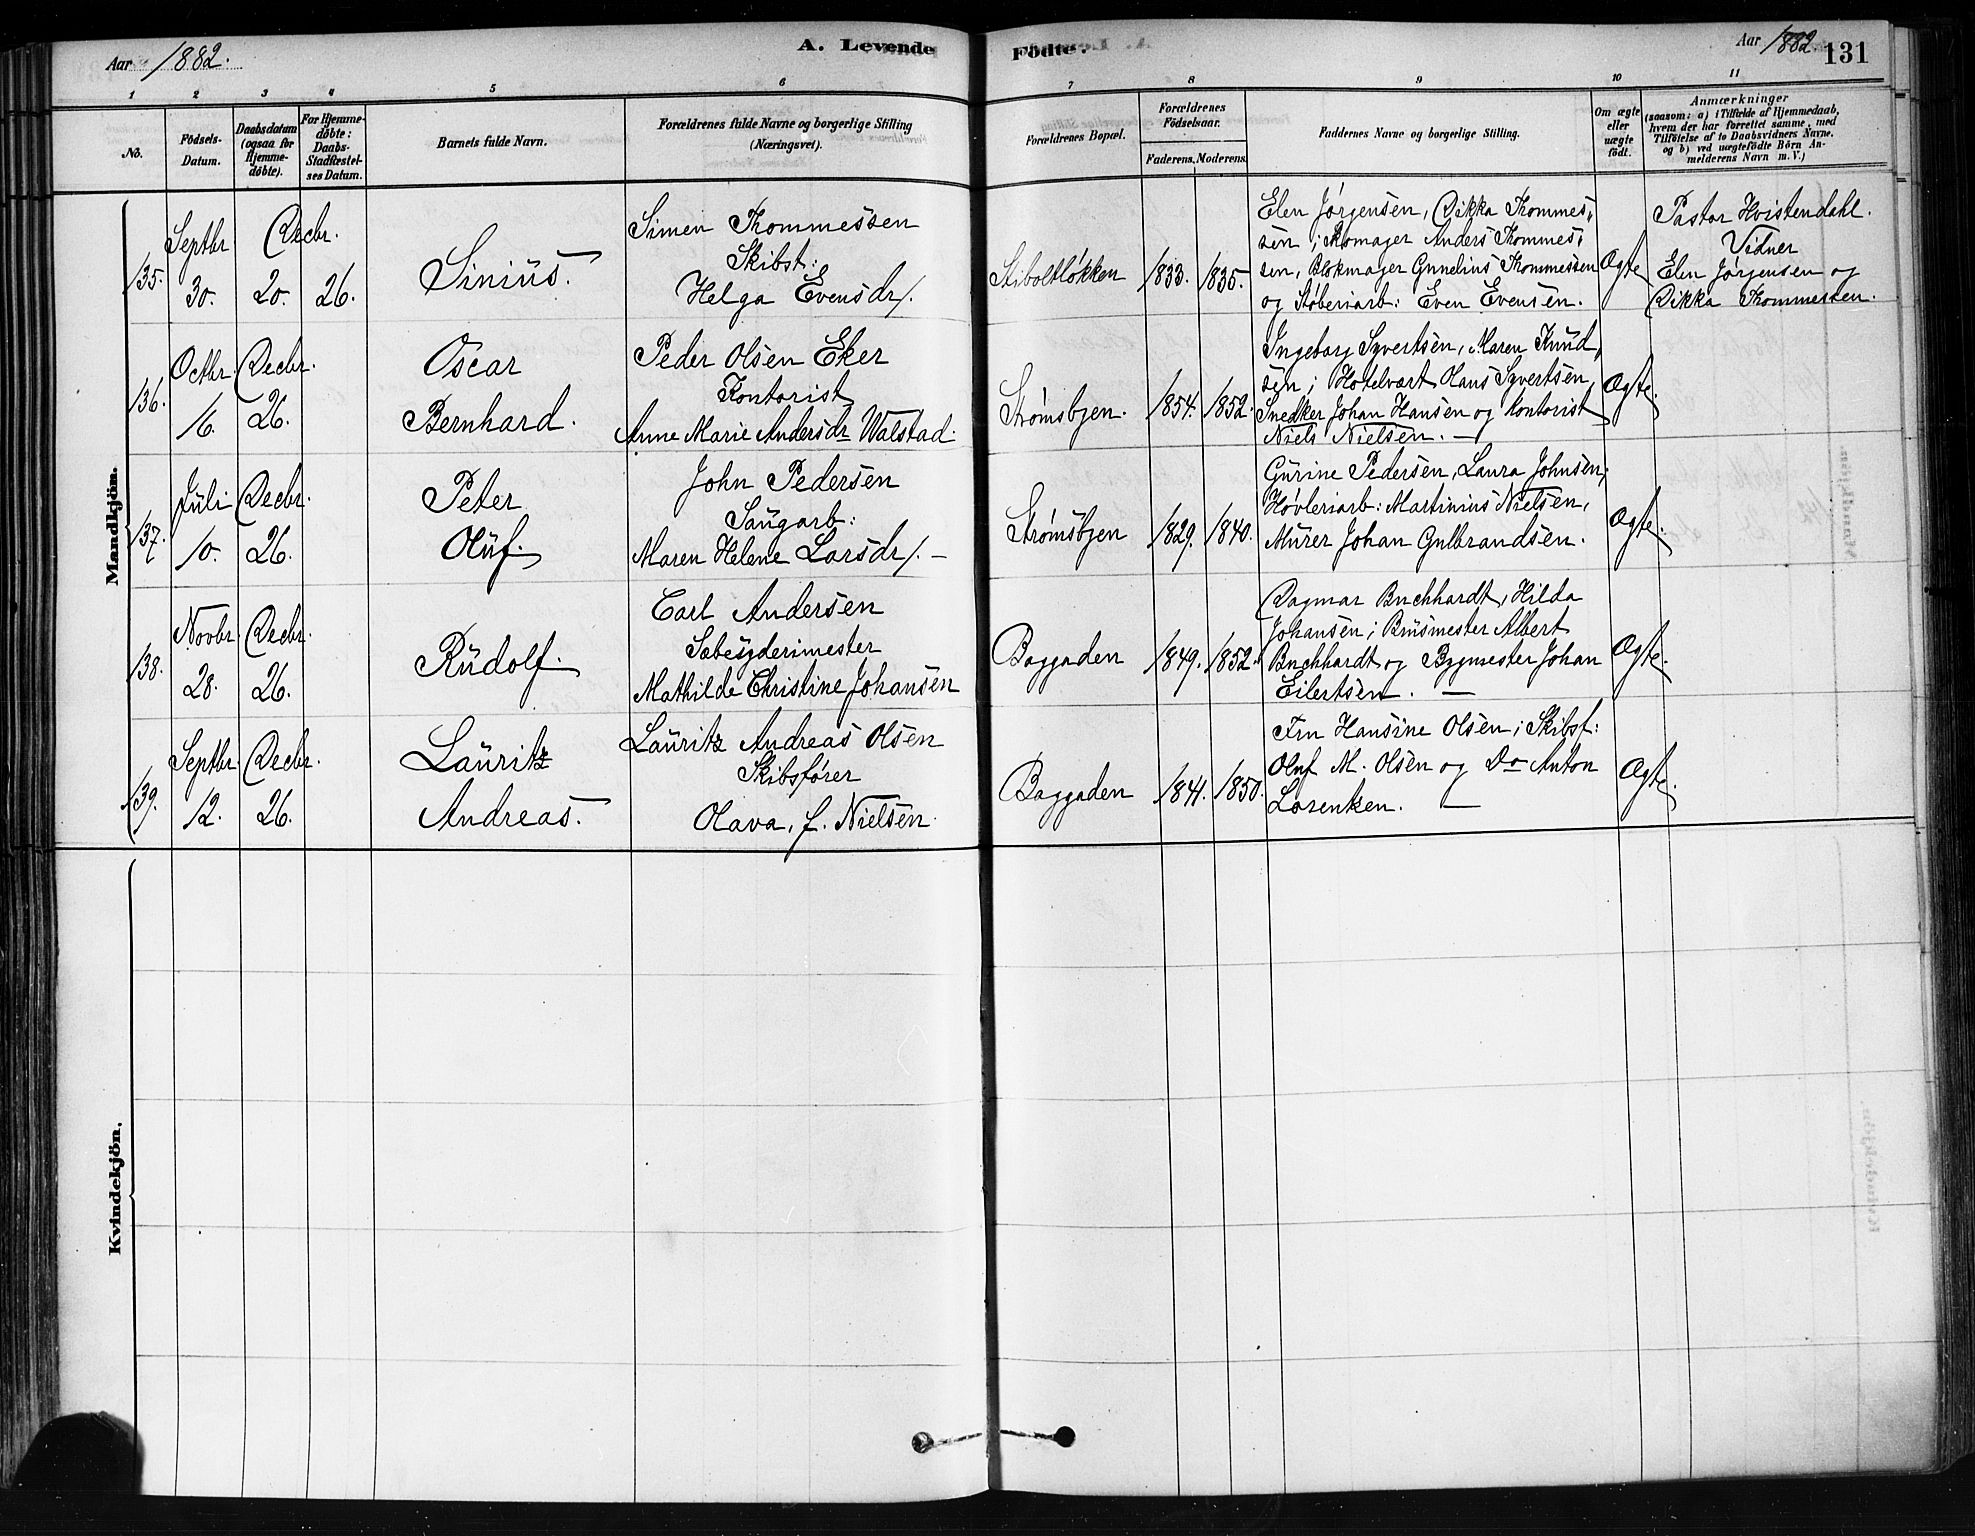 Aar 1882.
A. Levende
Födte.
Aar 1882.
131
1 2 3 4 5 6 7 8 9 10 11
No.
Födsels-Datum.
Daabsdatum (ogsaa for Hjemme-døbte).
For Hjemme-døbte: Daabs-Stadfæstel-ses Datum.
Barnets fulde Navn.
Forældrenes fulde Navne og borgerlige Stilling
(Næringsvei).
Forældrenes Bopæl.
Forældrenes Födselsaar.
Faderens. Moderens.
Faddernes Navne og borgerlige Stilling.
Om ægte eller uægte födt.
Anmærkninger
(saasom: a) i Tilfælde af Hjemmedaab,
hvem der har forrettet samme, med
Tilföielse af to Daabsvidners Navne.
og b) ved uægtefödte Börn An-
melderens Navn m. V.)
Mandkjön.
135.
Septbr. 30.
Decbr. 20. 26.
Sinius.
Simen Thommessen
Skibst:
Helga Evensdr.
Stiboltløkken
1833. 1835.
Elen Jørgensen, Rikka Thommes-
sen; Skomager Anders Thommes-
sen, Blokmager Gunelius Thommessen
og Støberiarb: Even Evensen.
Ægte
Pastor Hvistendahl.
Vidner
Elen Jørgensen og
Rikka Thommessen.
136.
Octbr. 16.
Decbr. 26.
Oscar
Bernhard.
Peder Olsen Eker
Kontorist
Anne Marie Andersdr Walstad.
Strømsbyen.
1854. 1852.
Ingeborg Syvertsen, Maren Knud-
sen; Hotelvært Hans Syvertsen,
Snedker Johan Hansen og Kontorist
Niels Nielsen. —
Ægte.
137.
Juli 10.
Decbr. 26.
Peter
Oluf.
John Pedersen
Saugarb:
Maren Helene Larsdr. —
Strømsbyen
1829. 1840.
Gurine Pedersen, Laura Johnsen;
Høvleriarb: Martinius Nielsen,
Murer Johan Gulbrandsen.
Ægte.
138.
Novbr. 28.
Decbr. 26.
Rudolf.
Carl Andersen
Sæbesyderimester
Mathilde Christine Johansen
Baggaden
1849. 1852.
Dagmar Buchhardt, Hilda
Johansen; Brusmester Albert
Buchhardt og Bygmester Johan
Eilertsen. —
Ægte.
139.
Septbr. 12.
Decbr. 26.
Lauritz
Andreas.
Lauritz Andreas Olsen
Skibsfører
Olava, f. Nielsen.
Baggaden
1841. 1850.
Fru Hansine Olsen; Skibsf:
Oluf M. Olsen og Do Anton
Lorentzen. —
Ægte.
Kvindekjön.